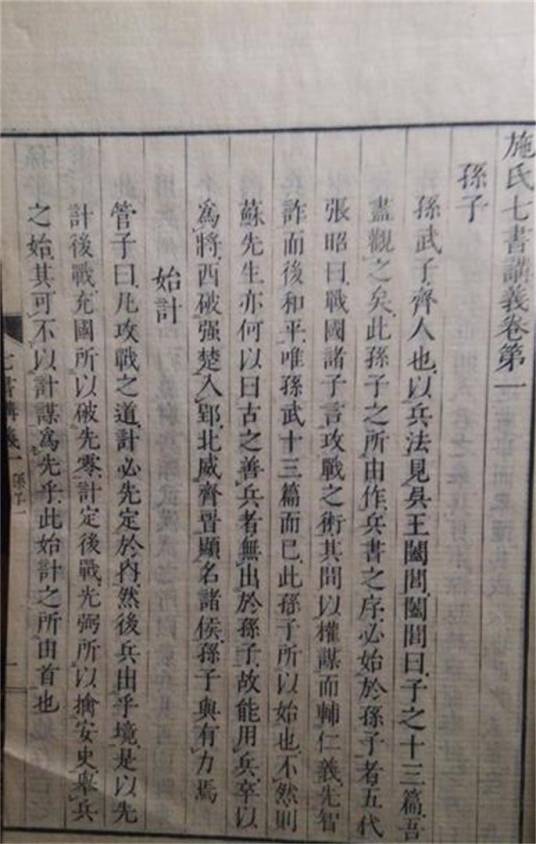 施氏七書講義卷第一
孫子
孫武子齊人也以兵法見吳王闔閭闔閭曰子之十三篇吾
盡觀之矣此孫子之所由作兵書之序必始於孫子者五代
張昭曰戰國諸子言攻戰之術其間以權謀而輔仁義先智
詐而後和平唯孫武十三篇而已此孫子所以始也不然則
蘇先生亦何以曰古之善兵者無出於孫子故能用兵卒以
爲將西破强楚入郢北威齊晋顯名諸侯孫子與有力焉
始計
管子曰凡攻戰之道計必先定於內然後兵出乎境是以先
計後戰充國所以破先零計定後戰光弼所以擒安史舉兵
之始其可不以計謀爲先乎此始計之所由首也
七書講義一 孫子 一